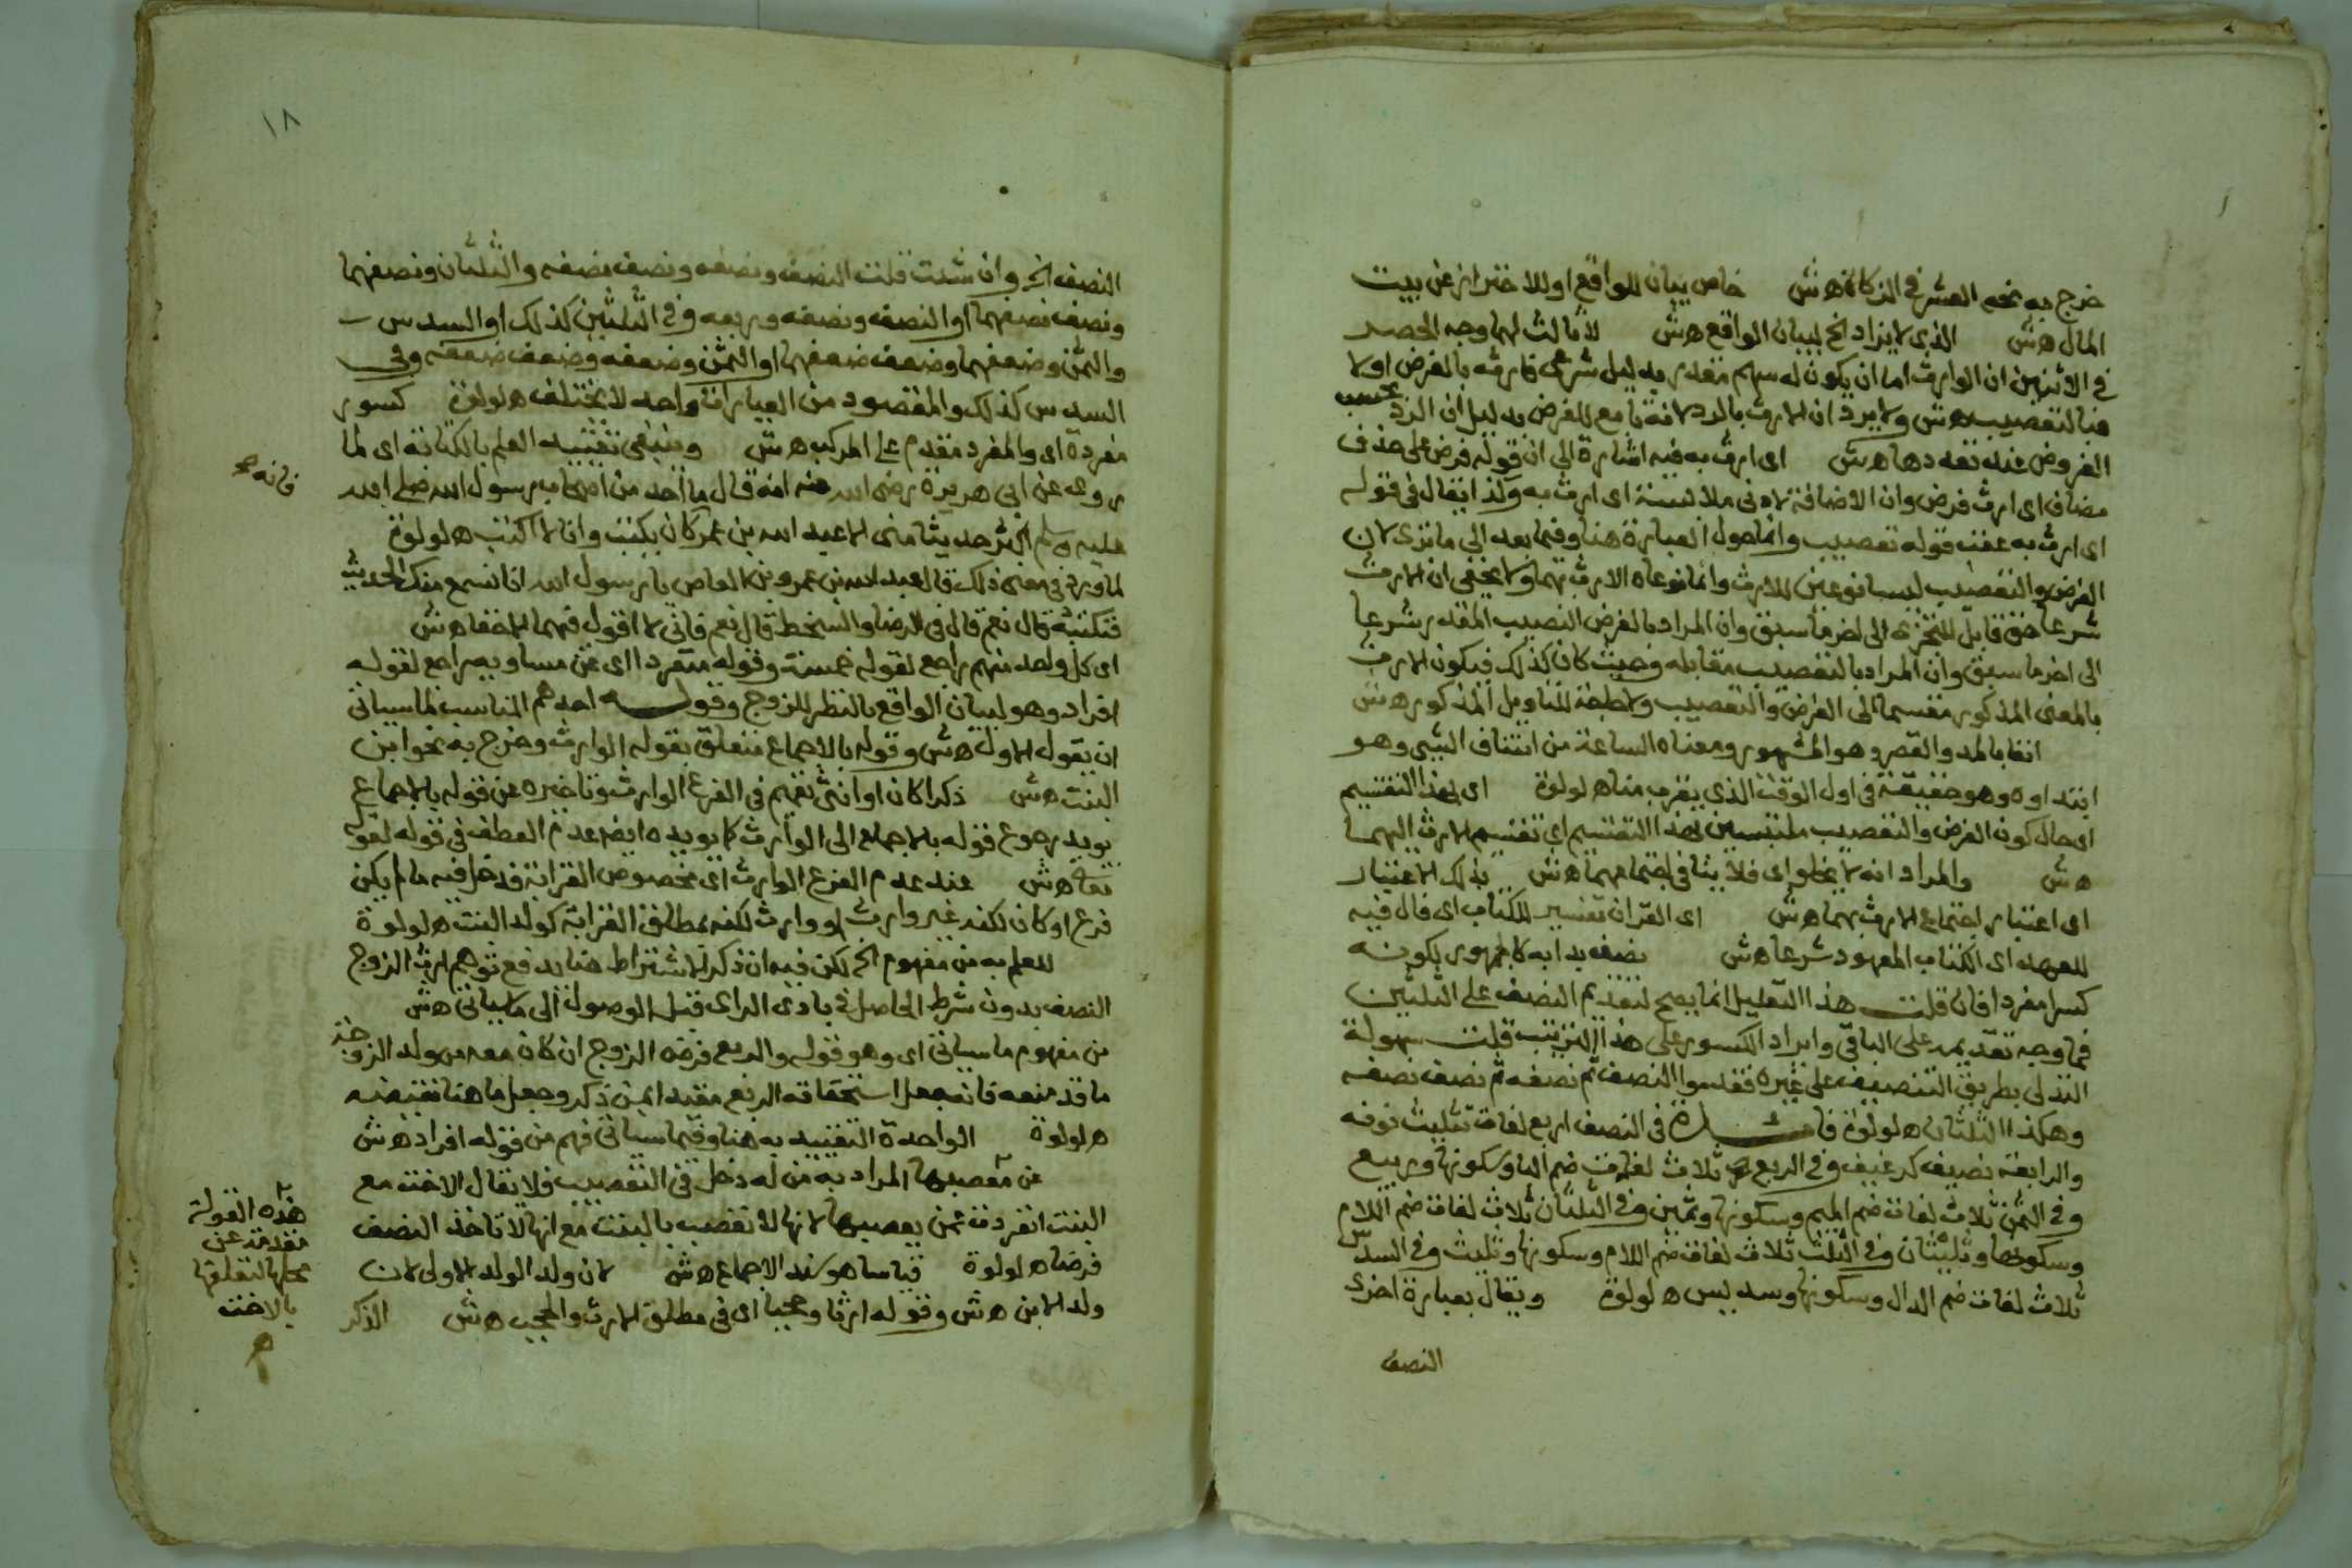 خرج به نحو العشر في الزكاة هش خاص بيان للواقع او للاحتراز عن بيت
المال هش الذي لا يزاد الخ لبيان الواقع هش لا ثالث لهما وجه الحصر
في الاثنين ان الوارث اما ان يكون له سهم مقدر بدليل شرعي فارثه بالفرض اولا
فبالتعصيب هش ولا يرد ان الارث بالرد لانه تابع للفرض بدليل ان الرد بحسب
الفروض عند تعددها هش اي ارث به فيه اشارة الى ان قوله فرض على حذف
مضاف اي ارث فرض وان الاضافة لادنى ملابسة اي ارث به وكذا يقال في قوله
اي ارث به عقب قوله تعصيب وانما حول العبارة هنا وفيما بعد الى ما ترى لان
الفرض والتعصيب ليسا نوعين للارث وانما نوعاه الارث بهما ولا يخفى ان الارث
شرعا حق قابل للتجزي الى اخر ما سبق وان المراد بالفرض النصيب المقدر شرعا
الى اخر ما سبق وان المراد بالتعصيب مقابله وحيث كان كذلك فيكون الارث
بالمعنى المذكور مقسما الى الفرض والتعصيب ولا حاجة للتاويل المذكور هش
انفا بالمد والقصر وهو المشهور ومعناه الساعة من ائتناف الشي وهو
ابتداوه وهو حقيقة في اول الوقت الذي يقرب منا ه لولوة اي بهذا التقسيم
اي حال كون الفرض والتعصيب ملتبسين بهذا التقسيم اي تقسيم الارث اليهما
هش والمراد انه لا يخلو اي فلا ينافي اجتماعهما هش بذلك الاعتبار
اي اعتبار اجتماع الارث بهما هش اي القران تفسير للكتاب اي فال فيه
للعهد اي الكتاب المعهود شرعا هش نصف بدا به كالجمهور لكونه
كسرا مفردا فان قلت هذا التعليل انما يصح لتقديم النصف على الثلثين
فما وجه تقديمه على الباقي وايراد الكسور على هذا الترتيب قلت سهولة
التدلي بطريق التنصيف على غيره فقدموا النصف ثم نصفه ثم نصف نصفه
وهكذا الثلثان ه لولوة في النصف اربع لغات تثليث نونه
والرابعة نصيف كرغيف وفي الربع ثلاث لغات ضم البا وسكونها وربيع
وفي الثمن ثلاث لغات ضم الميم وسكونها وثمين وفي الثلثان ثلاث لغات ضم اللام
وسكونها وثليثان وفي الثلث ثلاث لغات ضم اللام وسكونها وثليث وفي السدس
ثلاث لغات ضم الدال وسكونها وسديس ه لولوة ويقال بعبارة اخرى
النصف
١٨
النصف الخ وان شئت قلت النصف ونصفه ونصف نصفه والثلثان ونصفهما
ونصف نصفهما او النصف ونصفه وربعه وفي الثلثين كذلك او السدس
والثمن وضعفهما وضعف ضعفهما او الثمن وضعفه وضعف ضعفه وفي
السدس كذلك والمقصود من العبارات واحد لا يختلف ه لولوة كسور
مفردة اي والمفرد مقدم على المركب هش وينبغي تقييد العلم بالكتابة اي لما
روى عن ابي هريرة رضى الله عنه انه قال ما احد من اصحاب رسول الله صلى الله
فانه
عليه وسلم اكثر حديثا منى الا عبد الله بن عمر كان يكتب وانا لا اكتب ه لولوة
لما ورد في معنى ذلك قال عبد الله بن عمرو بن العاص يا رسول الله انا نسمع منك الحديث
فنكتبه قال نعم قال في الرضا والسخط قال نعم فاني لا اقول فيهما الا حقا هش
اي كل واحد منهم راجع لقوله خمسة وقوله منفردا اي عن مساويه راجع لقوله
افراد وهو لبيان الواقع بالنظر للزوج وقوله احدهم المناسب لما سياتي
ان يقول الاول هش وقوله بالاجماع متعلق بقوله الوارث وخرج به نحو ابن
البنت هش ذكرا كان او انثى تعميم في الفرع الوارث وتاخيره عن قوله بالاجماع
يويد رجوع قوله بالاجماع الى الوارث كما يويده ايضا عدم العطف في قوله لقوله
تعالى هش عند عدم الفرع الوارث اي بخصوص القرابة فدخل فيه ما لم يكن
فرع او كان لكنه غير وارث او وارث لكنه بمطلق القرابة كولد البنت ه لولوة
للعلم به من مفهوم الخ لكن فيه ان ذكر الاشتراط هنا يدفع توهم ارث الزوج
النصف بدون شرط الحاصل في بادى الراى قبل الوصول الى ما سياتي هش
من مفهوم ما سياتي اي وهو قوله والربع فرض الزوج ان كان معه من ولد الزوجة
ما قد منعه فانه جعل استحقاقه الربع مقيدا بمن ذكر وجعل ما هنا نقيضه
ه لولوة الواحدة التقييد به هنا وفيما سياتي فهم من قوله افراد هش
عن معصبها المراد به من له دخل في التعصيب فلا يقال الاخت مع
البنت انفردت عمن يعصبها لانها لا تعصب بالبنت مع انها لا تاخذ النصف
فرضا ه لولوة قياسا هو سند الاجماع هش لان ولد الولد الاولى لان
ولد الابن هش وقوله ارثا وحجبا اي في مطلق الارث والحجب هش الذكر
هذه القولة
مقدمة عن
محلها لتعلقها
بالاخت